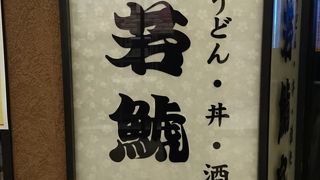 うどん・丼・酒
若鯱